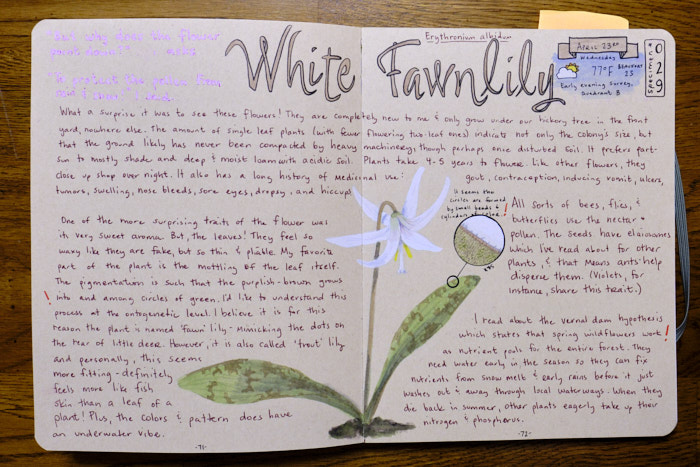 "But why does the flower
point down?"
"To protect the pollen from
rain
White Fawnlily
Erythronium albidum
April 23rd
Wednesday
77°F
23
Early evening survey,
Quadrant B
Specimen:
029
What a surprise it was to see these flowers! They are completely new to me & only grow under our hickory tree in the front
yard, nowhere else. The amount of single leaf plants (with fewer flowering two-leaf ones) indicate not only the colony's size, but
that the ground likely has never been compacted by heavy machinery, though perhaps once disturbed soil. It prefers part-
sun to mostly shade and deep & moist loam with acidic soil. Plants take 4-5 years to flower. Like other flowers, they
close up shop over night. It also has a long history of medicinal use: gout, contraception, inducing vomit, ulcers,
tumors, swelling, nose bleeds, sore eyes, dropsy, and hiccups
One of the more surprising traits of the flower was
it's very sweet aroma. But, the leaves! They feel so
waxy like they are fake, but so thin & pliable. My favorite
part of the plant is the mottling of the leaf itself.
The pigmentation is such that the purplish-brown grows
! into and among circles of green. I'd like to understand this
process at the ontogenetic level. I believe it is for this
reason the plant is named 'fawn' lily - mimicking the dots on
the rear of little deer. However, it is also called 'trout' lily
and personally, this seems
more fitting - definitely
feels more like fish
skin than a leaf of a
plant! Plus, the colors & pattern does have
an underwater vibe.
-71-
It seems the
circles are formed
by small beads &
cylinders of color.
!
All sorts of bees, flies, &
butterflies use the nectar &
pollen. The seeds have elaiosomes
which I've read about for other
plants, & that means ants help
disperse them. (Violets, for
instance, share this trait.)
I read about the vernal dam hypothesis
which states that spring wildflowers work !
as nutrient pools for the entire forest. They
need water early in the season so they can fix
nutrients from snow melt & early rains before it just
washes out & away through local waterways. When they
die back in summer, other plants eagerly take up their
nitrogen & phospherus.
-72-